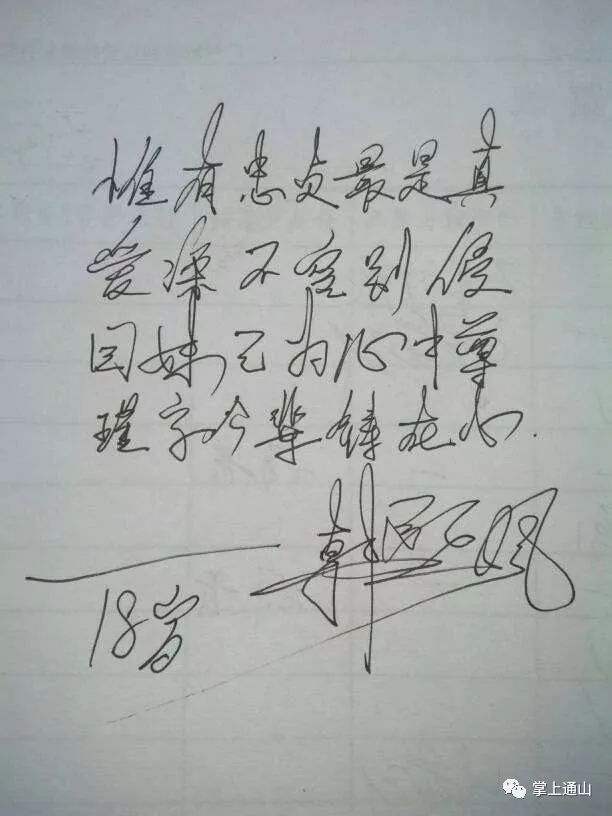 惟有忠贞最是真
爱深不容别侵
因妹已为心中尊
瑾字今辈铸在心.
韩
18岁
掌上通山